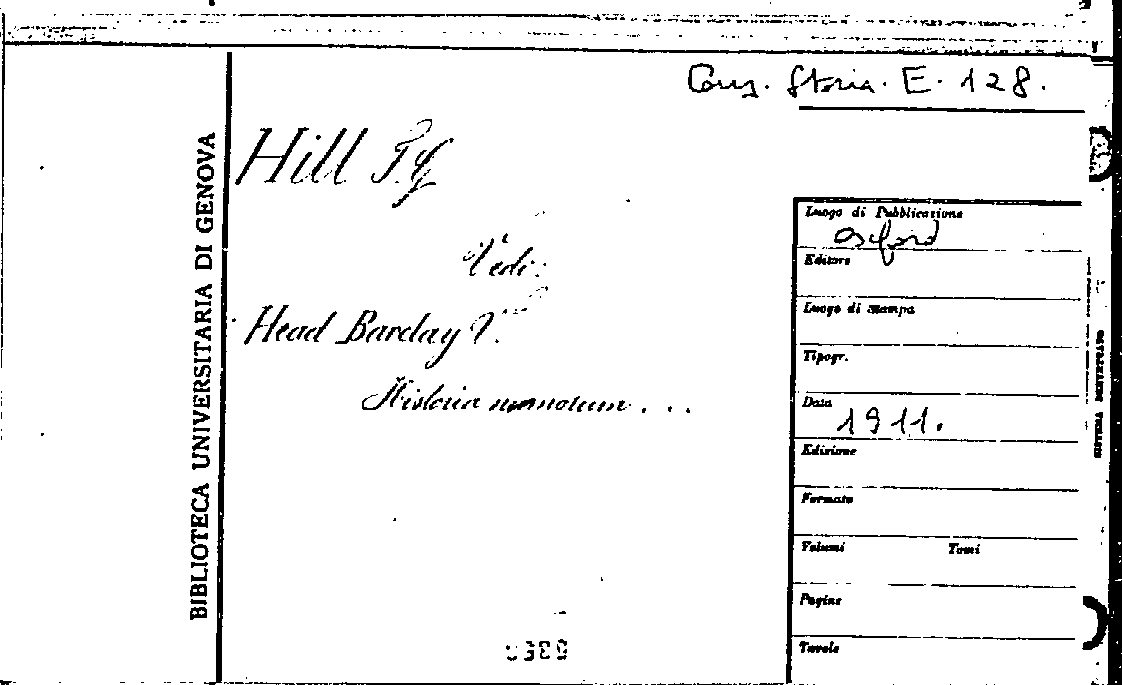 Cons. Storia. E. 128.
BIBLIOTECA UNIVERSITARIA DI GENOVA
Hill
Vedi:
Head Barclay V.
Historia numorum . . .
Luogo di Pubblicazione
Oxford
Editore
Luogo di stampa
Tipogr.
Data
1911.
Edizione
Formato
Volumi Tomi
Pagine
Tavole